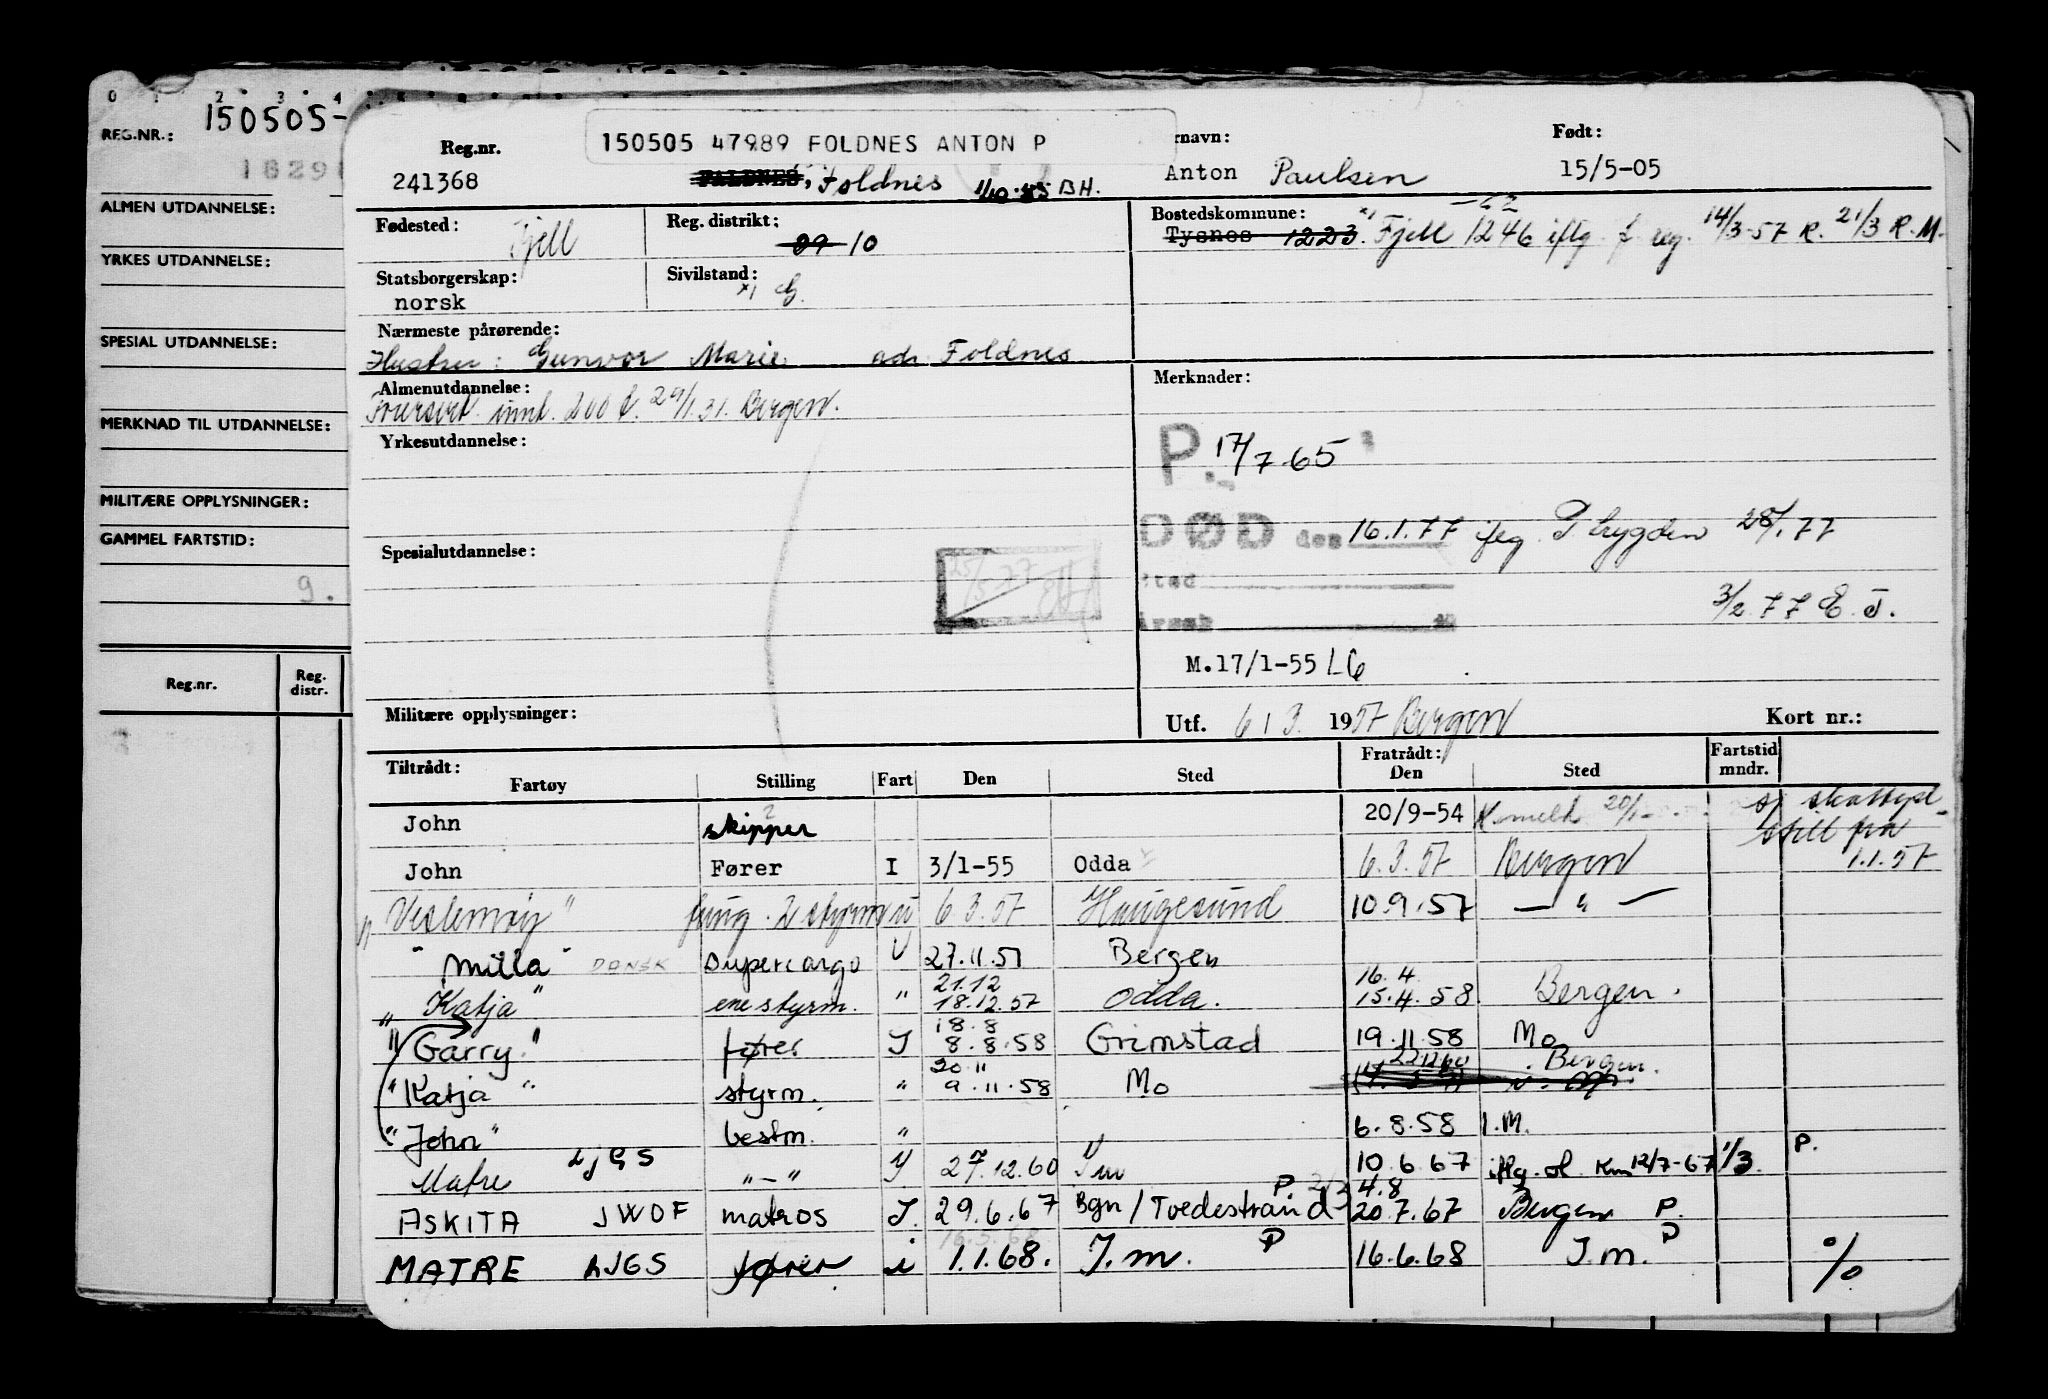 0 1 2 3 4
REG.NR.: 150505-
ALMEN UTDANNELSE:
YRKES UTDANNELSE:
SPESIAL UTDANNELSE:
MERKNAD TIL UTDANNELSE:
MILITÆRE OPPLYSNINGER:
GAMMEL FARTSTID:
9.
Reg.nr. Reg. distr.
150505 47989 FOLDNES ANTON P
Reg.nr. rnavn: Født:
241368 FALDNES, Foldnes 1/10-85 BH. Anton Paulsen 15/5-05
Fødested: Fjell Reg. distrikt: 09 10 Bostedskommune: -62
Tysnes 1223. x1 Fjell 1246 iflg. f. reg. 14/3-57 R. 21/3 R.M.
Statsborgerskap: norsk Sivilstand: x1 G.
Nærmeste pårørende:
Hustru: Gunvor Marie adr. Foldnes
Almenutdannelse: Merknader:
innt. 200 t. 29/1.31. Bergen.
Yrkesutdannelse:
P. 17/7-65
DØD den 16.1.77 ifg. P. bygden 28/1.77
Spesialutdannelse:
25/5 77
sted
3/2 77 E.J.
Årsak
M.17/1-55 LG
Militære opplysninger:
Utf. 6/3. 1957 Bergen Kort nr.:
Tiltrådt: Fratrådt: Fartstid mndr.
Fartøy Stilling Fart Den Sted Den Sted
John skipper 20/9-54 K.melk 20/1- sj skattepl.
still fra
John Fører I 3/1-55 Odda 6.3.57 Bergen 1.1.57
" Veslemøy " fung. 2 styrm u 6.3.57 Haugesund 10.9.57 — " —
" Milla " DANSK supercargo U 27.11.57 Bergen
21.12 16.4
" Katja " ene styrm. " 18.12.57 Odda. 15.4.58. Bergen.
18.8
" Garry. " fører I 8.8.58 Grimstad 19.11.58 Mo
20.11 22.12.60 Bergen.
" Katja " styrm. " 9.11.58 Mo
" John " bestm. " 6.8.58 I.M.
Matre LJGS " — " I 27.12.60 I m 10.6.67 iflg. sl. Km 12/7-67 1/3 P.
P 4.8
ASKITA JWOF matros I. 29.6.67 Bgn/Tvedestrand 20.7.67 Bergen P.
16.5.68
MATRE LJGS fører i 1.1.68. I.m. P 16.6.68 I.m. P %